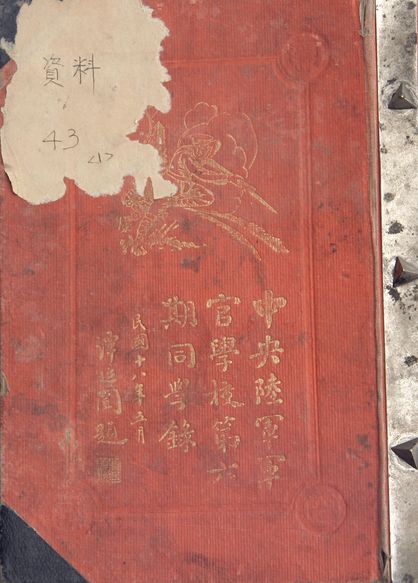 資料
43
小
中央陸軍軍
官學校第六
期同學錄
民國十八年五月